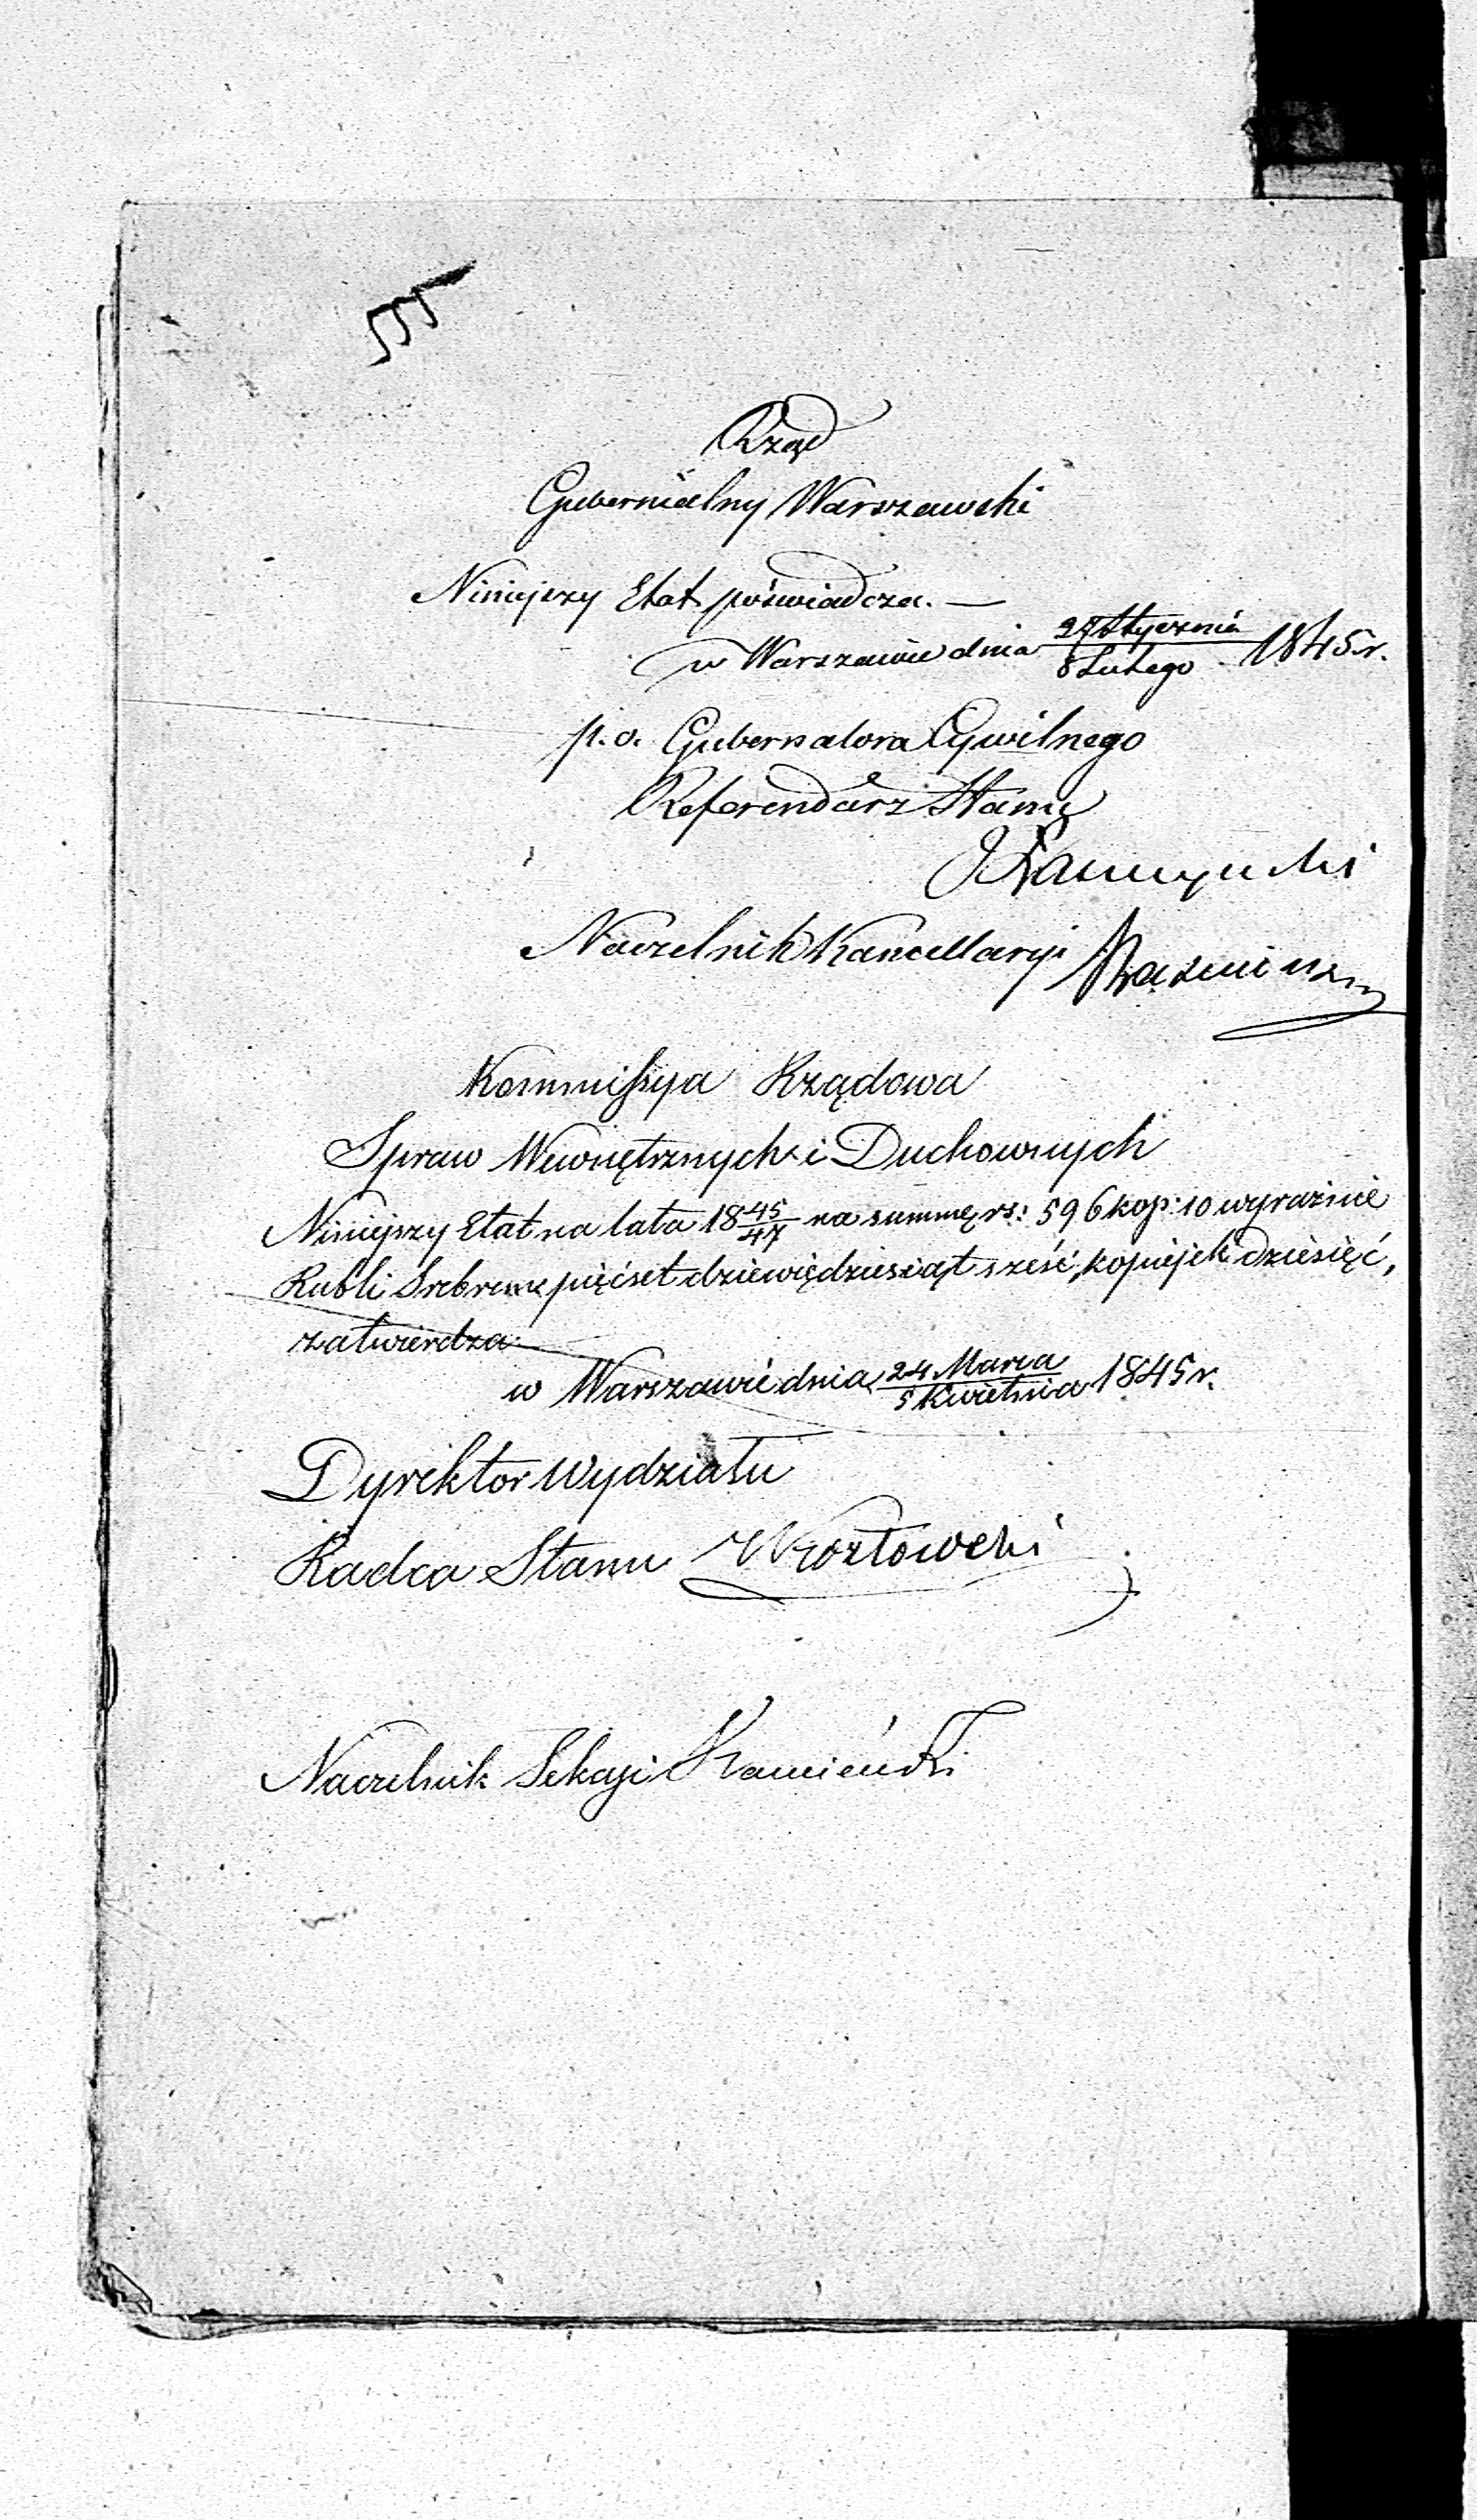 Rząd
Gubernialny Warszawski
Niniejszy Etat poświadcza. —
w Warszawie dnia 27 Stycznia / 8 Lutego 1845 r.
p. o. Gubernatora Cywilnego
Referendarz Stanu
Naczelnik Kancellaryi
Kommissya Rządowa
Spraw Wewnętrznych i Duchownych
Niniejszy Etat na lata 18 45/47 na summę rs: 596 kop: 10 wyraźnie
Rubli Srebrem pięćset dziewięćdziesiąt sześć, kopiejek dziesięć,
zatwierdza
w Warszawie dnia 24 Marca / 5 Kwietnia 1845 r.
Dyrektor Wydziału
Radca Stanu Kozłowski
Naczelnik Sekcyi Kamieński